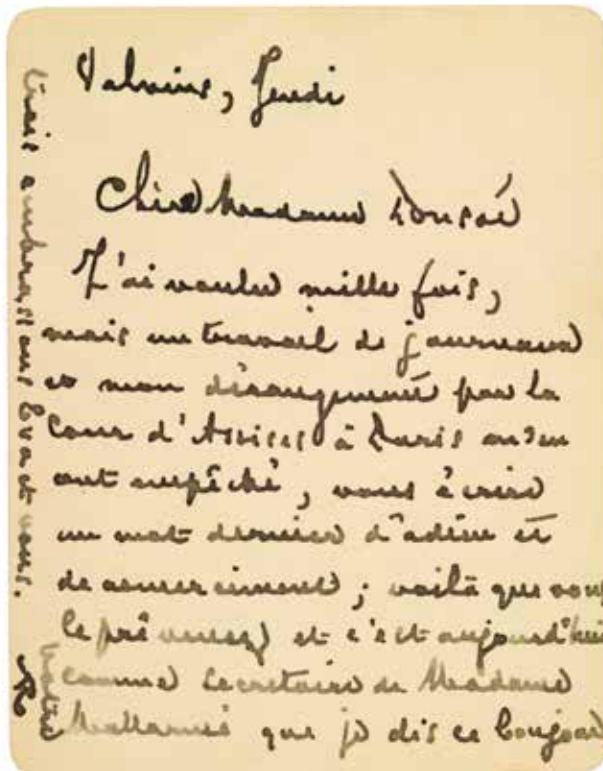 Valvins, Jeudi
Chère Madame
J'ai voulu mille fois,
mais un travail de journaux
et mon dérangement par la
Cour d'Assises à Paris m'en
ont empêché, vous écrire
un mot dernier d'adieu et
de remerciement ; voilà que vous
le prévenez et c'est aujourd'hui
comme secrétaire de Madame
Mallarmé que je dis ce bonjour
trois embrassons Eva et vous.
Votre